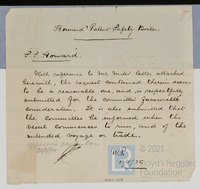 Howard's Patent Safety Boiler.
S.S. Howard.
With reference to Mr. letter attached
herewith, the request contained therein seems
to be a reasonable one, and is respectfully
submitted for the Committee's favorable
consideration. It is also submitted that
the Committee be informed when the
vessel commences to run, and of the
intended voyage or trade.
© 2021.
Lloyd's Register
Foundation